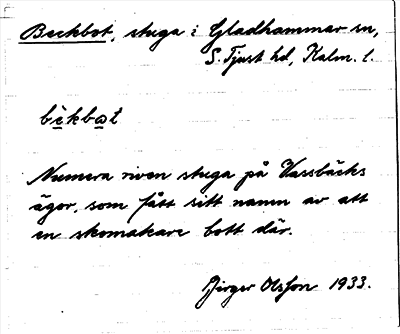 Beckbot, stuga i Gladhammar sn,
S. Tjust hd, Kalm. l.
bèkbot
Numera riven stuga på Vassbäcks
ägor, som fått sitt namn av att
en skomakare bott där.
Birger Olsson 1933.